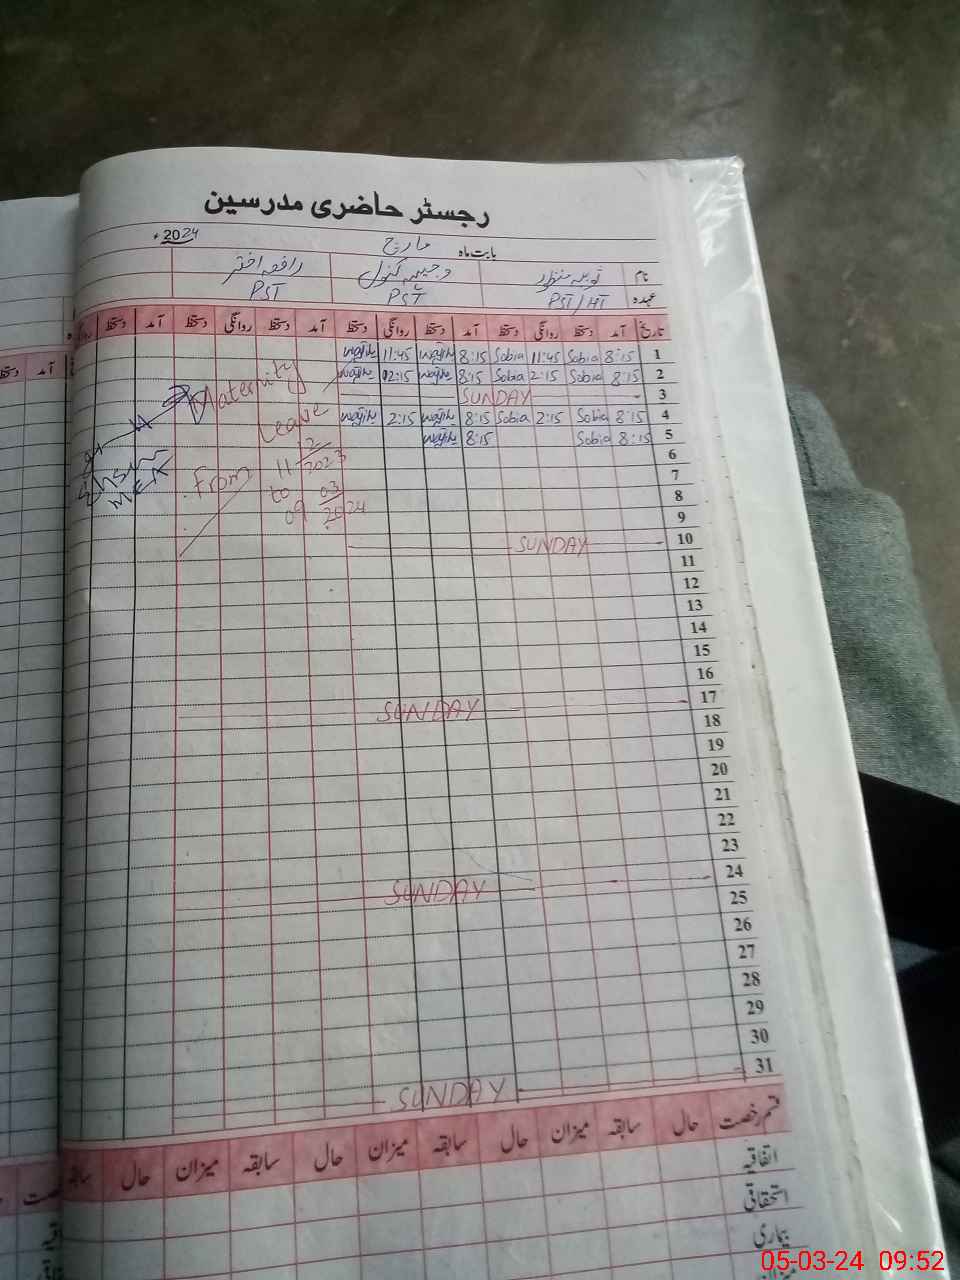 رجسٹر حاضری مدرسین
بابت ماہ مارچ 2024ء
نام ثوبیہ منظور وجیہہ کنول رافعہ اختر
عہدہ PST/HT PST PST
تاریخ آمد دستخط روانگی دستخط آمد دستخط روانگی دستخط آمد دستخط روانگی دستخط آمد دستخط
1 8:15 Sobia 11:45 Sobia 8:15 11:45
2 8:15 Sobia 2:15 Sobia 8:15 02:15
3 SUNDAY
4 8:15 Sobia 2:15 Sobia 8:15 2:15
5 8:15 Sobia 8:15
Maternity
Leave
From 11 12/2023
to
09 03/2024
MEA
6
7
8
9
10 SUNDAY
11
12
13
14
15
16
17 SUNDAY
18
19
20
21
22
23
24 SUNDAY
25
26
27
28
29
30
31 SUNDAY
قسم رخصت حال سابقہ میزان حال سابقہ میزان حال سابقہ میزان حال
اتفاقیہ
استحقاقی
بیماری
05-03-24 09:52